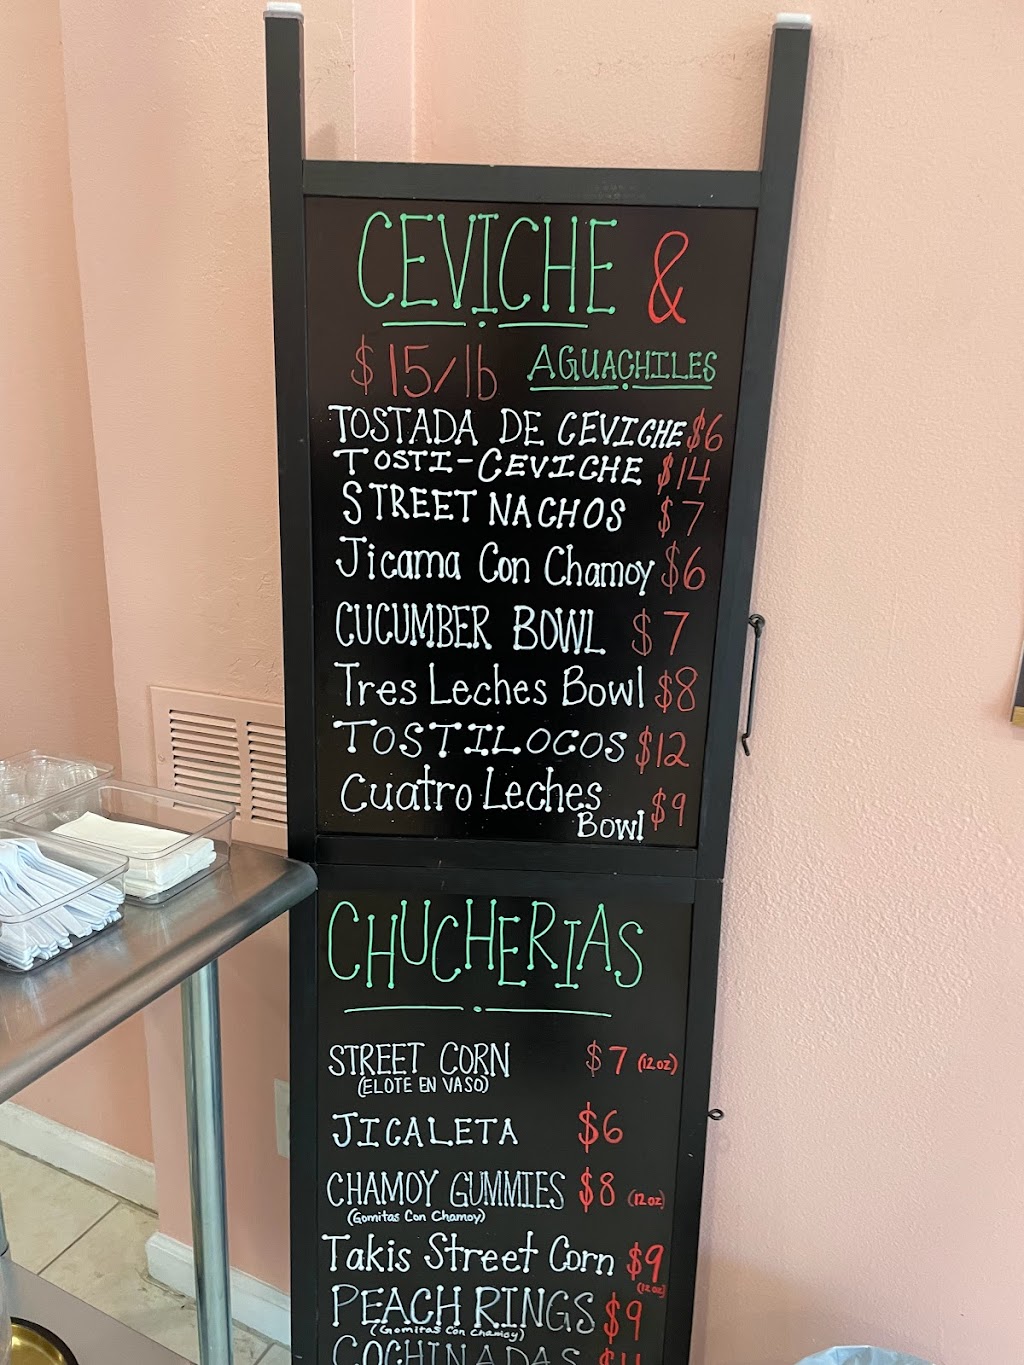 CEVICHE &
$15/lb AGUACHILES
TOSTADA DE CEVICHE $6
TOSTI-CEVICHE $14
STREET NACHOS $7
Jicama Con Chamoy $6
CUCUMBER BOWL $7
Tres Leches Bowl $8
TOSTILOCOS $12
Cuatro Leches
Bowl $9
CHUCHERIAS
STREET CORN $7 (12oz)
(ELOTE EN VASO)
JICALETA $6
CHAMOY GUMMIES $8 (12oz)
(Gomitas Con Chamoy)
Takis Street Corn $9
(12oz)
PEACH RINGS $9
(Gomitas Con Chamoy)
COCHINADAS $11